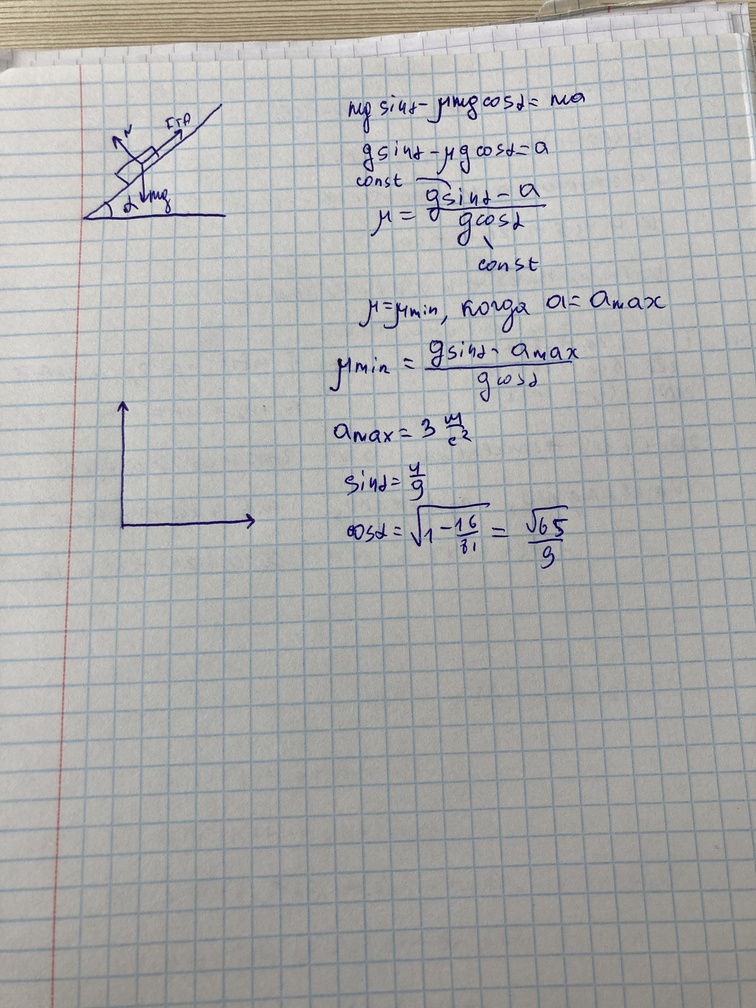 N
Fтр
α
mg
mg sinα - μmg cosα = ma
g sinα - μg cosα = a
const
μ = (g sinα - a)/(g cosα)
const
μ = μmin, когда a = amax
μmin = (g sinα - amax)/(g cosα)
amax = 3 м/с²
sinα = 4/9
cosα = √(1 - 16/81) = √65/9